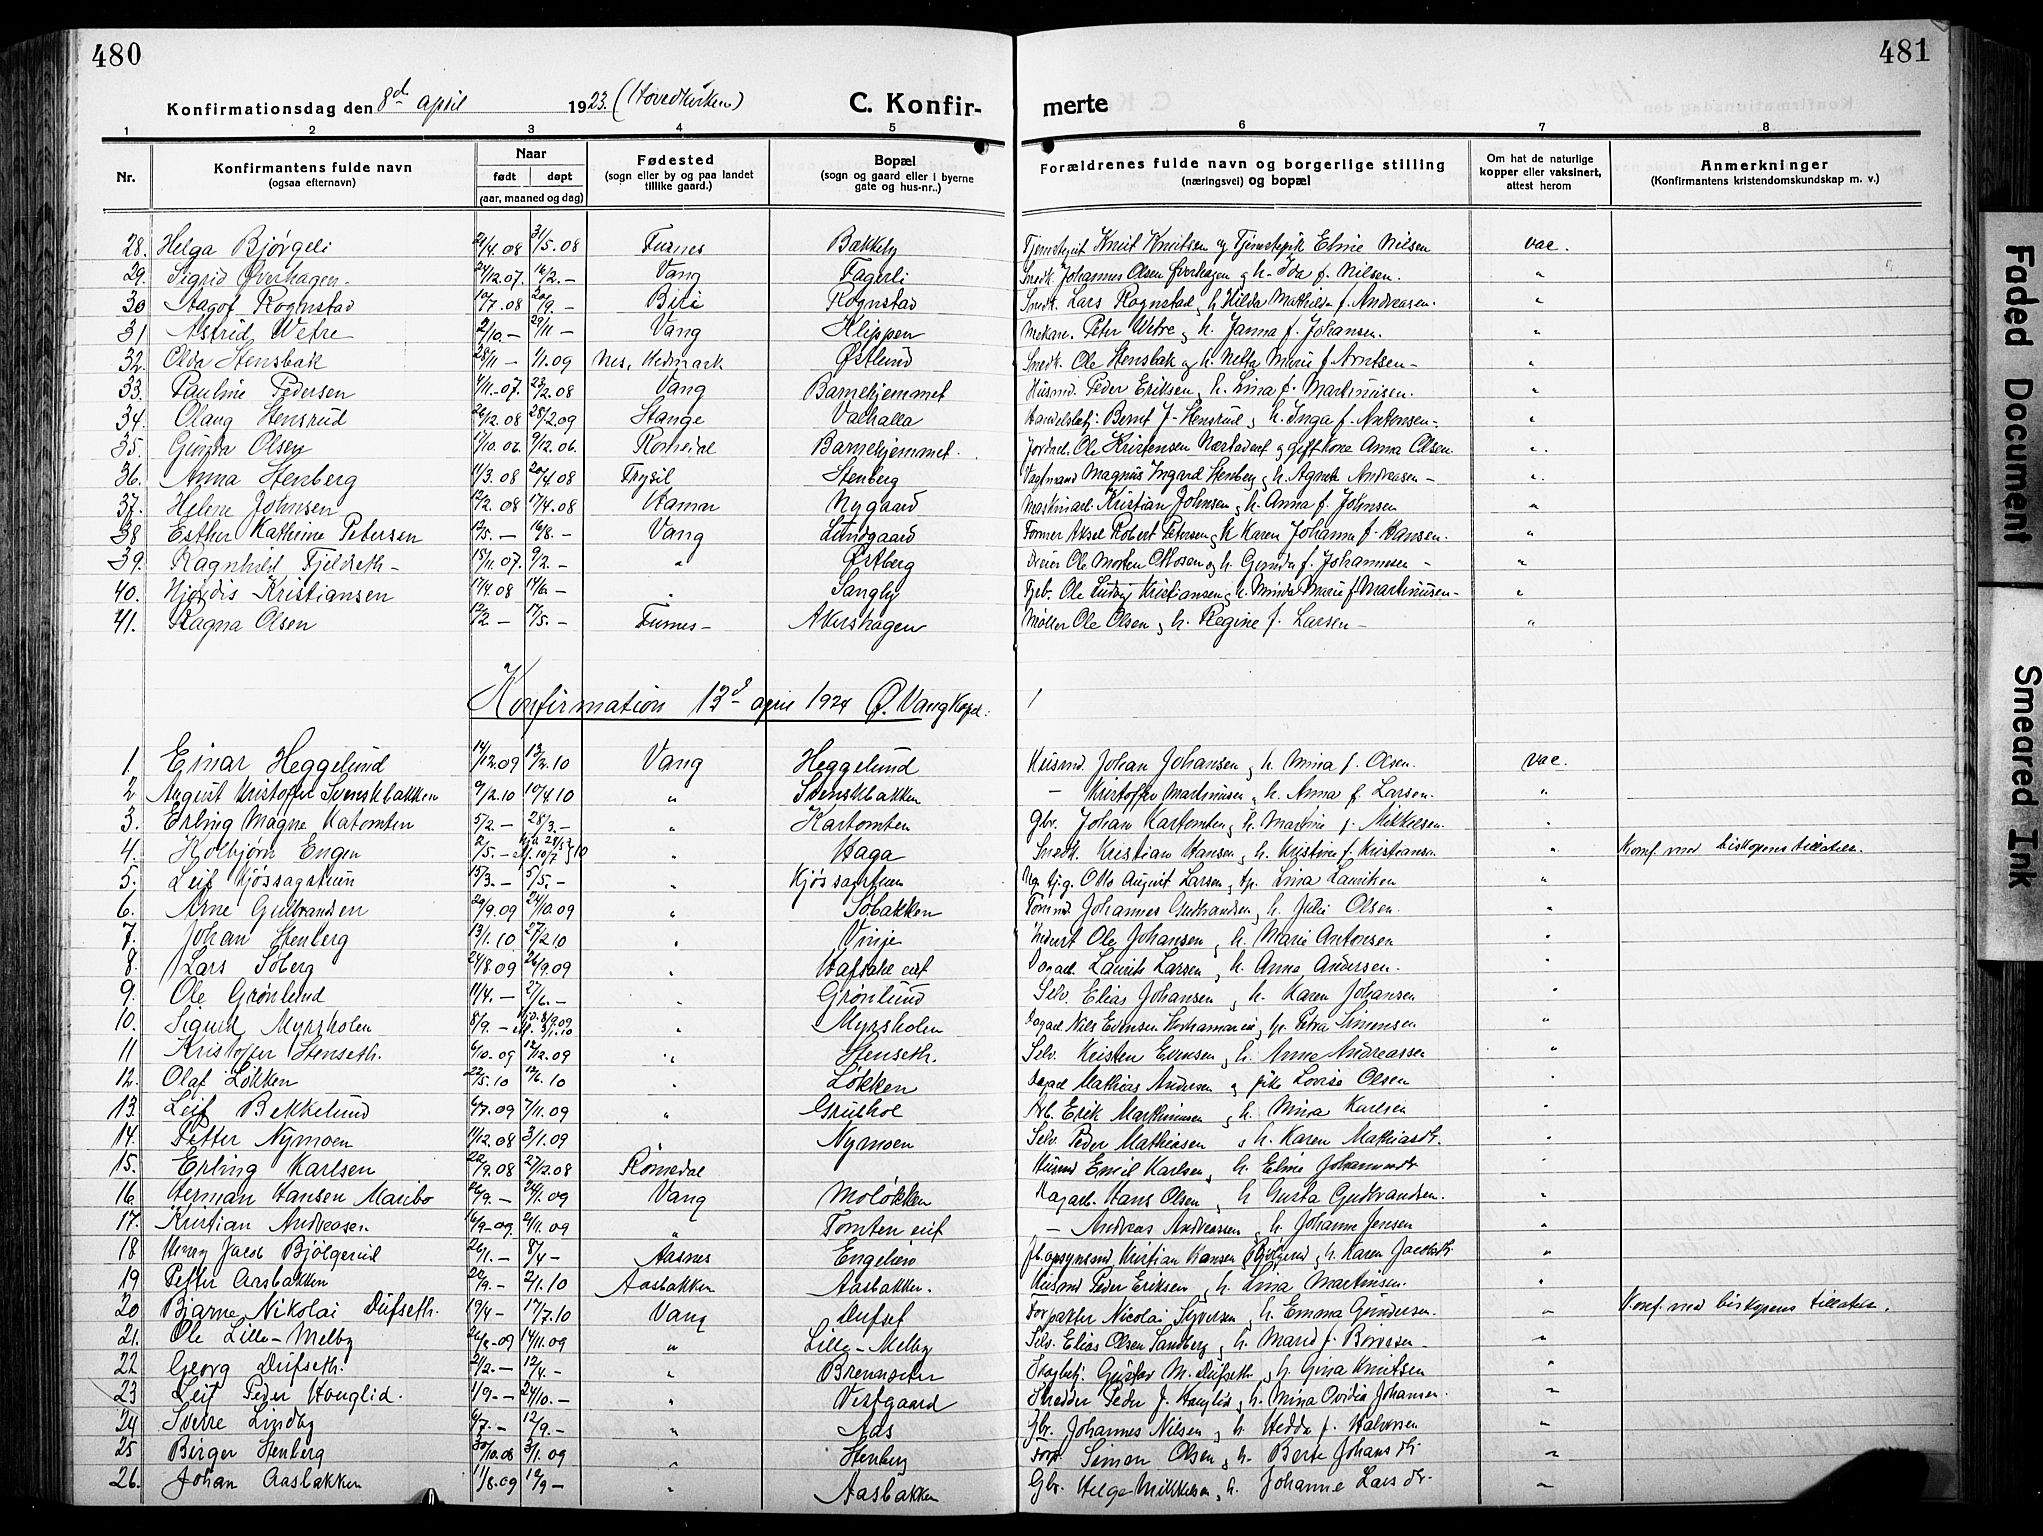 480
481
Konfirmationsdag den 8de april 1923. (Hovedkirken)
C. Konfir-
merte
1 2 3 4 5 6 7 8
Nr.
Konfirmantens fulde navn
(ogsaa efternavn)
Naar
født døpt
(aar, maaned og dag)
Fødested
(sogn eller by og paa landet
tillike gaard.)
Bopæl
(sogn og gaard eller i byerne
gate og hus-nr..)
Forældrenes fulde navn og borgerlige stilling
(næringsvei) og bopæl
Om hat de naturlige
kopper eller vaksinert,
attest herom
Anmerkninger
(Konfirmantens kristendomskundskap m. v.)
28. Helga Bjørgeli 21/4.08 31/5.08 Furnes Bækkeby Knut Knutsen og Tjenestepik Eline Nilsen vac.
29. Sigrid Øverhagen 24/12.07. 16/2.- Vang Fagerli Snedk. Johannes Olsen Øverhagen og h. Ida f. Nilsen. "
30 Aagot Rognstad 10/7.08 20/9.- Biri Rognstad Snedk. Lars Rognstad og h. Hilda Mathilde f. Andreasen. "
31 Astrid Wetre 2/10.- 29/11- Vang Klippen Mekan. Peter Wetre og h. Janna f. Johansen. "
32. Olda Stensbak 28/11- 1/1.09 Nes, Hedmark Østlund Snedk. Ole Stensbak og h. Netta Marie f. Arntsen- "
33. Pauline Pedersen 4/11.-07. 23/2.08 Vang Barnehjemmet Husmd. Peder Eriksen, h. Lina f. Martinusen. "
34. Olaug Stensrud 26/12.08 28/2.09 Stange Valhalla Handelsbetj. Bernt J. Stensrud og h. Inga f. Antonsen-. "
35. Gunda Olsen 17/10.06. 9/12.06. Romedal Barnehjemmet. Jordarb. Ole Kristensen og gift kone Anna Olsen "
36. Anna Stenberg 11/3.08 20/4 08 Trysil Stenberg Magnus Ingvard Stenberg og h. Agnete Andreasen- "
37. Helene Johnsen 12/2.08 17/4.08 Hamar Nygaard Maskinarb. Kristian Johnsen og h. Anna f. Johnsen "
38 Esther Kathrine Petersen 12/5.- 16/8.- Vang Lundgaard Former Aksel Robert Petersen og h. Karen Johanna f. Hansen. "
39. Ragnhild Fjeldseth- 15/11.07. 9/2.- " Østberg Ole Morten Ottosen og h. Gunda f. Johannesen- "
40. Hjørdis Kristiansen 17/4.08 14/6- " Sangby Gbr. Ole Ludvig Kristiansen og h. Minda Marie f. Martinusen- "
41. Ragna Olsen 12/2- 17/5.- Furnes- Akershagen Møller Ole Olsen og h. Regine f. Larsen- "
Konfirmation 13de april 1924 Ø. Vang Kapel.
1. Einar Heggelund 14/12.09 13/2.10 Vang Heggelund Husmd. Johan Johansen og h. Mina f. Olsen. vac.
2 August Kristoffer Svenskbakken 9/2.10 10/4.10 " Svenskbakken - Kristoffer Martinusen og h. Anna f. Larsen. "
3. Erling Magne Katomten 5/2.- 28/3.- " Kartomten Gbr. Johan Kartomten og h. Martine f. Mikkelsen. "
4. Kolbjørn Engen 2/5.- " Haga Snedk. Kristian Hansen og h. Kristine f. Kristiansen " Konf. med biskopens tillatelse.
5. Leif Kjøssagstuen 15/3.- 5/5.- " Kjøssagstuen Otto August Larsen og Lina Lauritsen "
6. Arne Gulbrandsen 29/9.09 24/10.09 " Sobakken Tømmd. Johannes Gudbrandsen og h. Julie Olsen. "
7. Johan Stenberg 13/1.10 27/2 10 " Vinje Inderst Ole Johansen og h. Marie Antonsen "
8. Lars Soberg 24/8.09 26/9.09 " Dagarb. Laurits Larsen og h. Anna Andersen. "
9. Ole Grønlund 11/4.- 27/6.- " Grønlund Selv. Elias Johansen og h. Karen Johansen "
10. Sigurd Myrsholen 8/9.- " Myrsholen Dagarb. Nils Evensen og h. Petra Simonsen "
11 Kristoffer Stenseth. 6/10.09 12/12.09 " Stenseth. Selv. Kristen Evensen og h. Anne Andreassen "
12. Olaf Løkken 22/5.10 12/6.10 " Løkken Dagarb. Mathias Andersen og pike Lovise Olsen "
13. Leif Bekkelund 6/7.09 7/11.09 " Grushol Arb. Erik Martinusen og h. Mina Karlsen "
14. Petter Nymoen 11/12.08 3/1.09 Nymoen Selv. Peder Mathiasen og h. Karen Mathiasdt. "
15. Erling Karlsen 22/9.08 27/12.08 Romedal Husmd Emil Karlsen, h. Eline Johannesdt. "
16. Herman Hansen Maribo 26/9.- 24/1.09 Vang Moløkken Dagarb. Hans Olsen og h. Gusta Gudbrandsen. "
17. Kristian Andreasen 16/9-09. 2/11.09 " Tomten - Andreas Andreassen og h. Johanne Jensen "
18 Henry Jacob Bjølgerud 26/1.- 8/4- Aasnes Kristian Hansen Bjølgerud og h. Karen Jacobsdt. "
19 Petter Aasbakken 22/9.- 2/1.10 Aasbakken Aasbakken. Husmd Peder Eriksen og h. Lina Martinsen. "
20 Bjarne Nikolai Dufseth. 19/4- 17/7.10 Vang Dufset Forpakter Nicolai Syversen og h. Emma Gundersen. " Konf. med biskopens tillatelse.
21. Ole Lille-Melby 26/8-09 14/11.09 " Lille-Melby Selv. Elias Olsen Sandberg og h. Marie f. "
22 Georg Dufseth. 21/2.- 12/4.- " Brennseter Skogbetj. Gustav M. Dufseth og h. Gina Knutsen "
23 Leif Peder Honglid. 1/9.- 24/10.- " Vestgaard Skredder Peder J. Honglid og h. Mina Ovidia Johansen. "
24 Sverre Lindby 4/7.- 12/9.- " Aas Gbr. Johannes Nilsen og h. Hedda f. Halvorsen "
25 Birger Stenberg 30/10.08 3/1.09 " Stenberg Forp. Simon Olsen og h. Berte Johansdt. "
26. Johan Aasbakken 11/8.09 12/9- " Aasbakken Gbr. Helge Mikkelsen og h. Johanne Larsdt. "
Faded Document
Smeared Ink